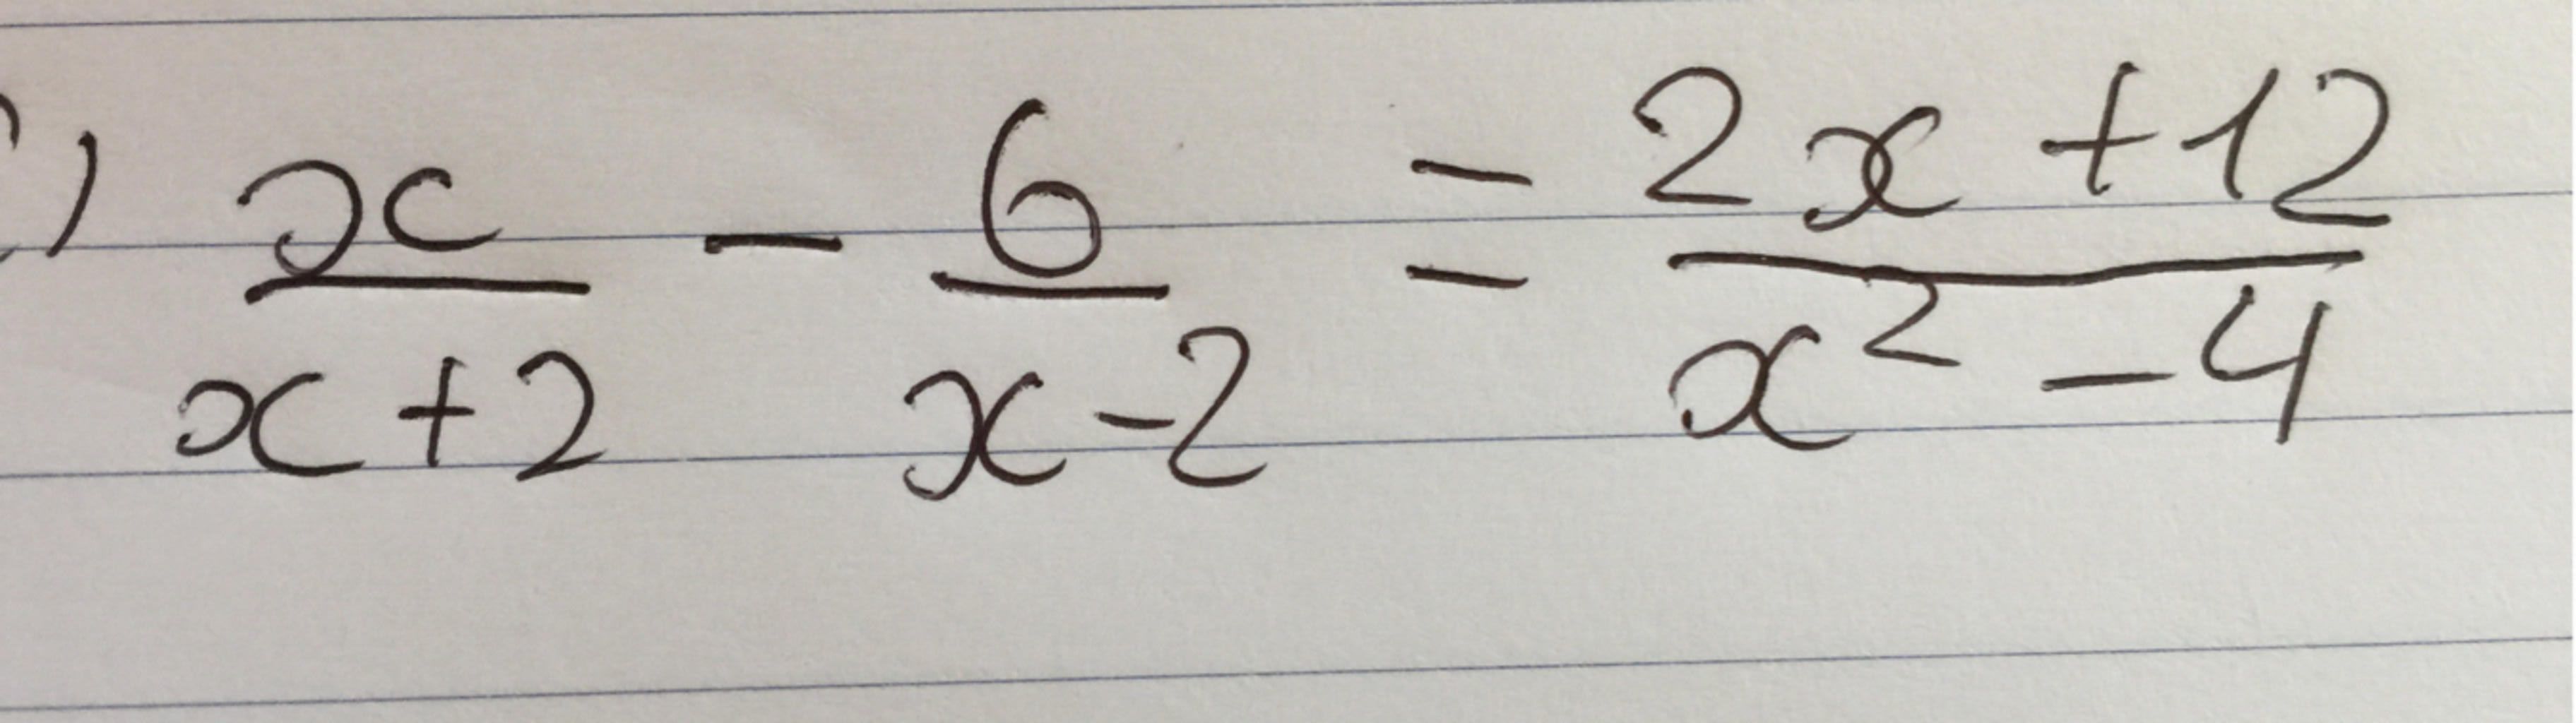 ) x/(x+2) - 6/(x-2) = (2x+12)/(x²-4)